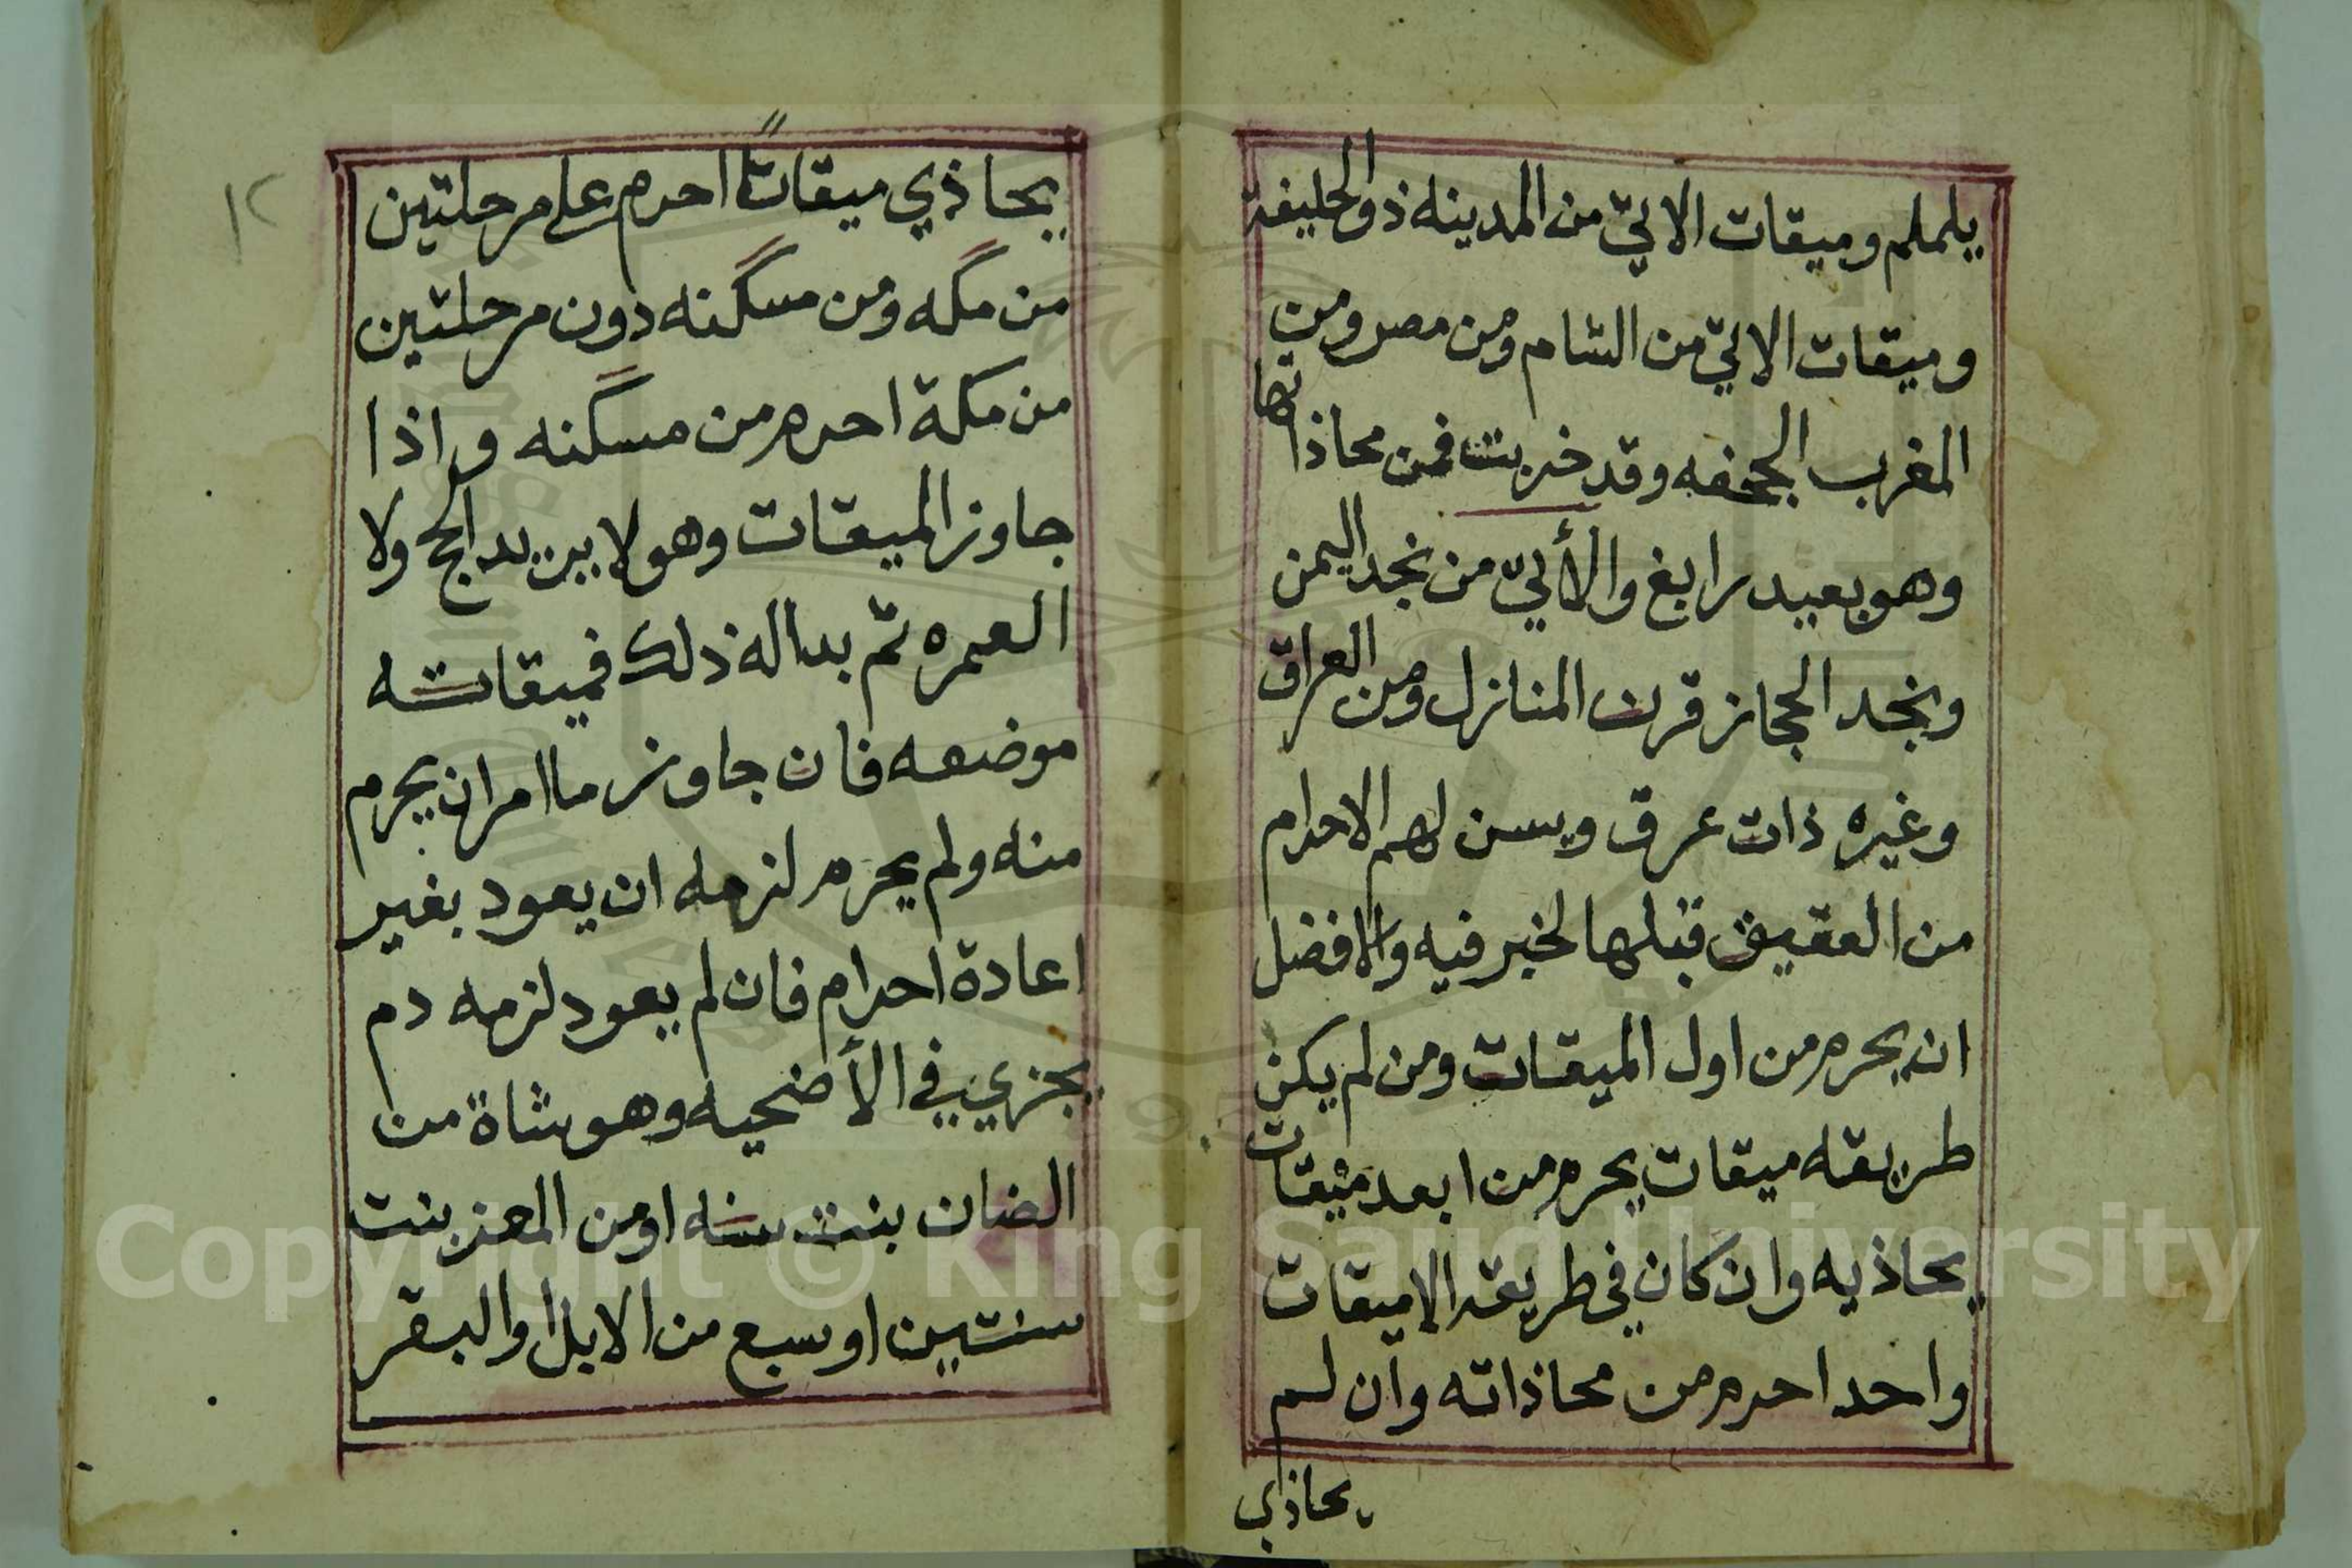 يلملم وميقات الاتيّ من المدينه ذو الحليفة
وميقات الاتيّ من الشام ومن مصر ومن
المغرب الجحفه وقد خربت فمن محاذاتها
وهو بعيد رابغ والأتيّ من نجد اليمن
ونجد الحجاز قرن المنازل ومن العراق
وغيره ذات عرق ويسن لهم الاحرام
من العقيق قبلها لخبر فيه والافضل
ان يحرم من اول الميقات ومن لم يكن
طريقه ميقات يحرم من ابعد ميقات
يحاذيه وان كان في طريقه الا ميقات
واحد احرم من محاذاته وان لم
يحاذي
١٢
يحاذي ميقاتًا احرم على مرحلتين
من مكه ومن مسكنه دون مرحلتين
من مكة احرم من مسكنه واذا
جاوز الميقات وهو لا يريد الحج ولا
العمره ثم بدا له ذلك فميقاته
موضعه فان جاوز ما امر ان يحرم
منه ولم يحرم لزمه ان يعود بغير
اعادة احرام فان لم يعود لزمه دم
يجزي في الأضحيه وهو شاة من
الضان بنت سنه او من المعز بنت
سنتين او سبع من الابل او البقر
Copyright © King Saud University